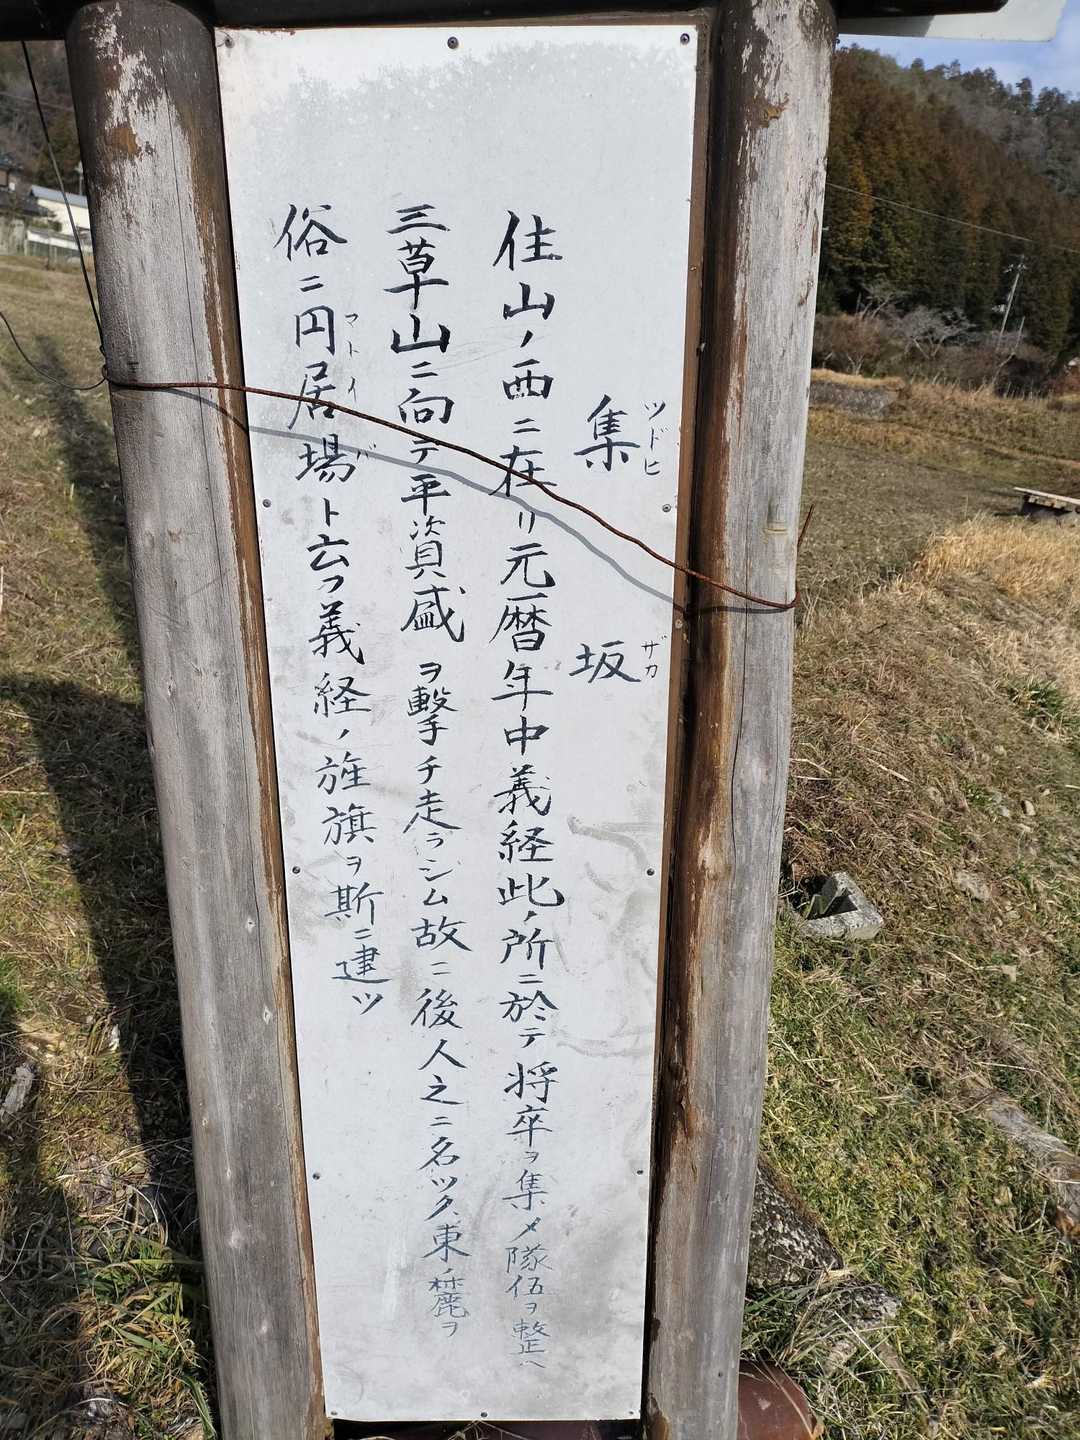 集 坂
ツドヒ ザカ
住山ノ西ニ在リ元暦年中義経此ノ所ニ於テ将卒ヲ集メ隊伍ヲ整ヘ
三草山ニ向テ平資盛ヲ撃チ走ラシム故ニ後人之ニ名ツク東麓ヲ
俗ニ円居場ト云フ義経ノ旌旗ヲ斯ニ建ツ
マトイバ